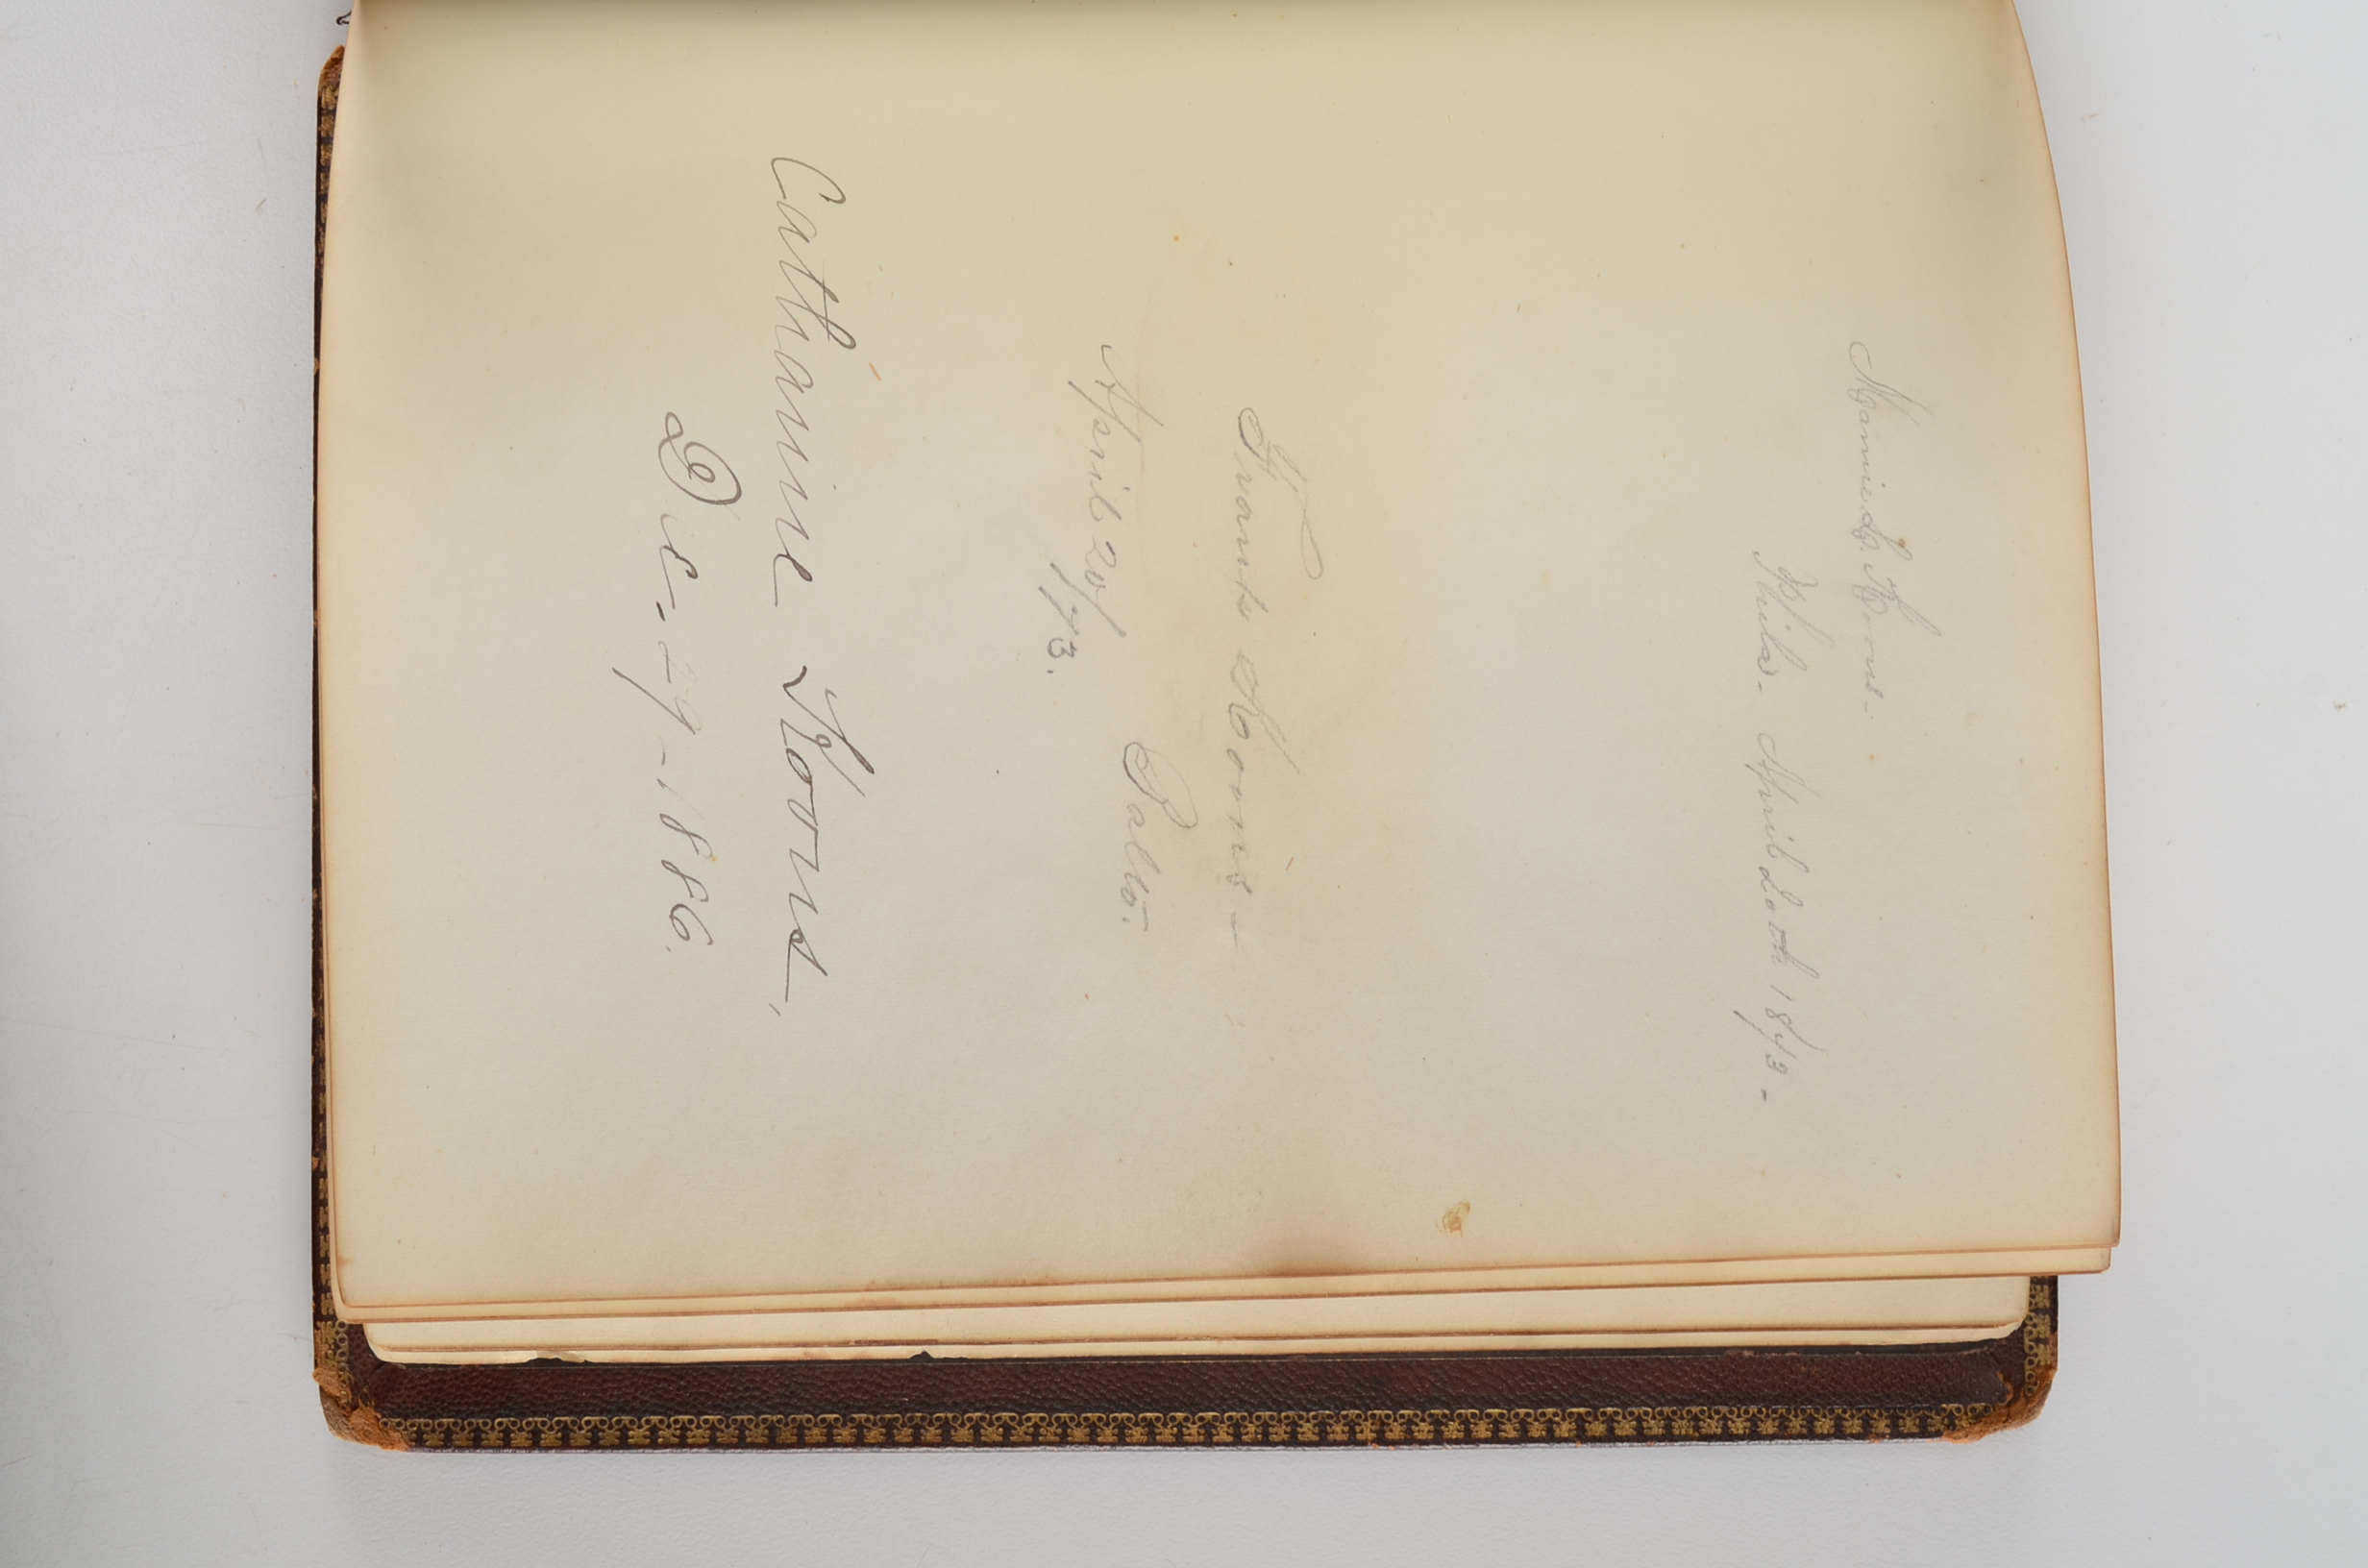 Mamie L. Koons.
Phila. April 20th 1873-
Frank Koons-
Balto.
April 20/73.
Catharine Koons,
Dec. 29-1886.